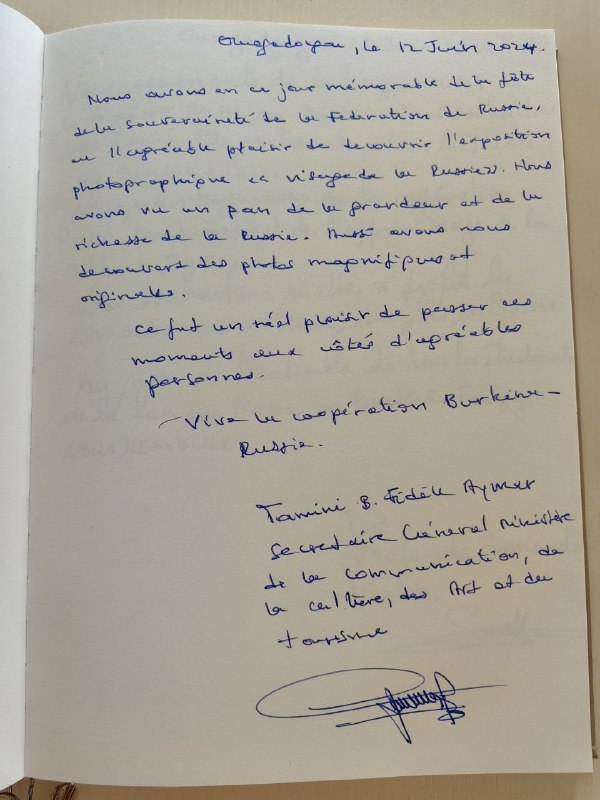 Ouagadougou, le 12 Juin 2024.
Nous avons en ce jour mémorable de la fête
de la souveraineté de la Fédération de Russie,
eu l'agréable plaisir de decouvrir l'exposition
photographique << visage de la Russie >>. Nous
avons vu un pan de la grandeur et de la
richesse de la Russie. Aussi avons nous
decouvert des photos magnifiques et
originales.
Ce fut un réel plaisir de passer ces
moments aux côtés d'agréables
personnes.
Vive la coopération Burkina-
Russie.
Tamini S. Fidèle Aymar
Secretaire Général Ministère
de la Communication, de
la culture, des Art et du
tourisme